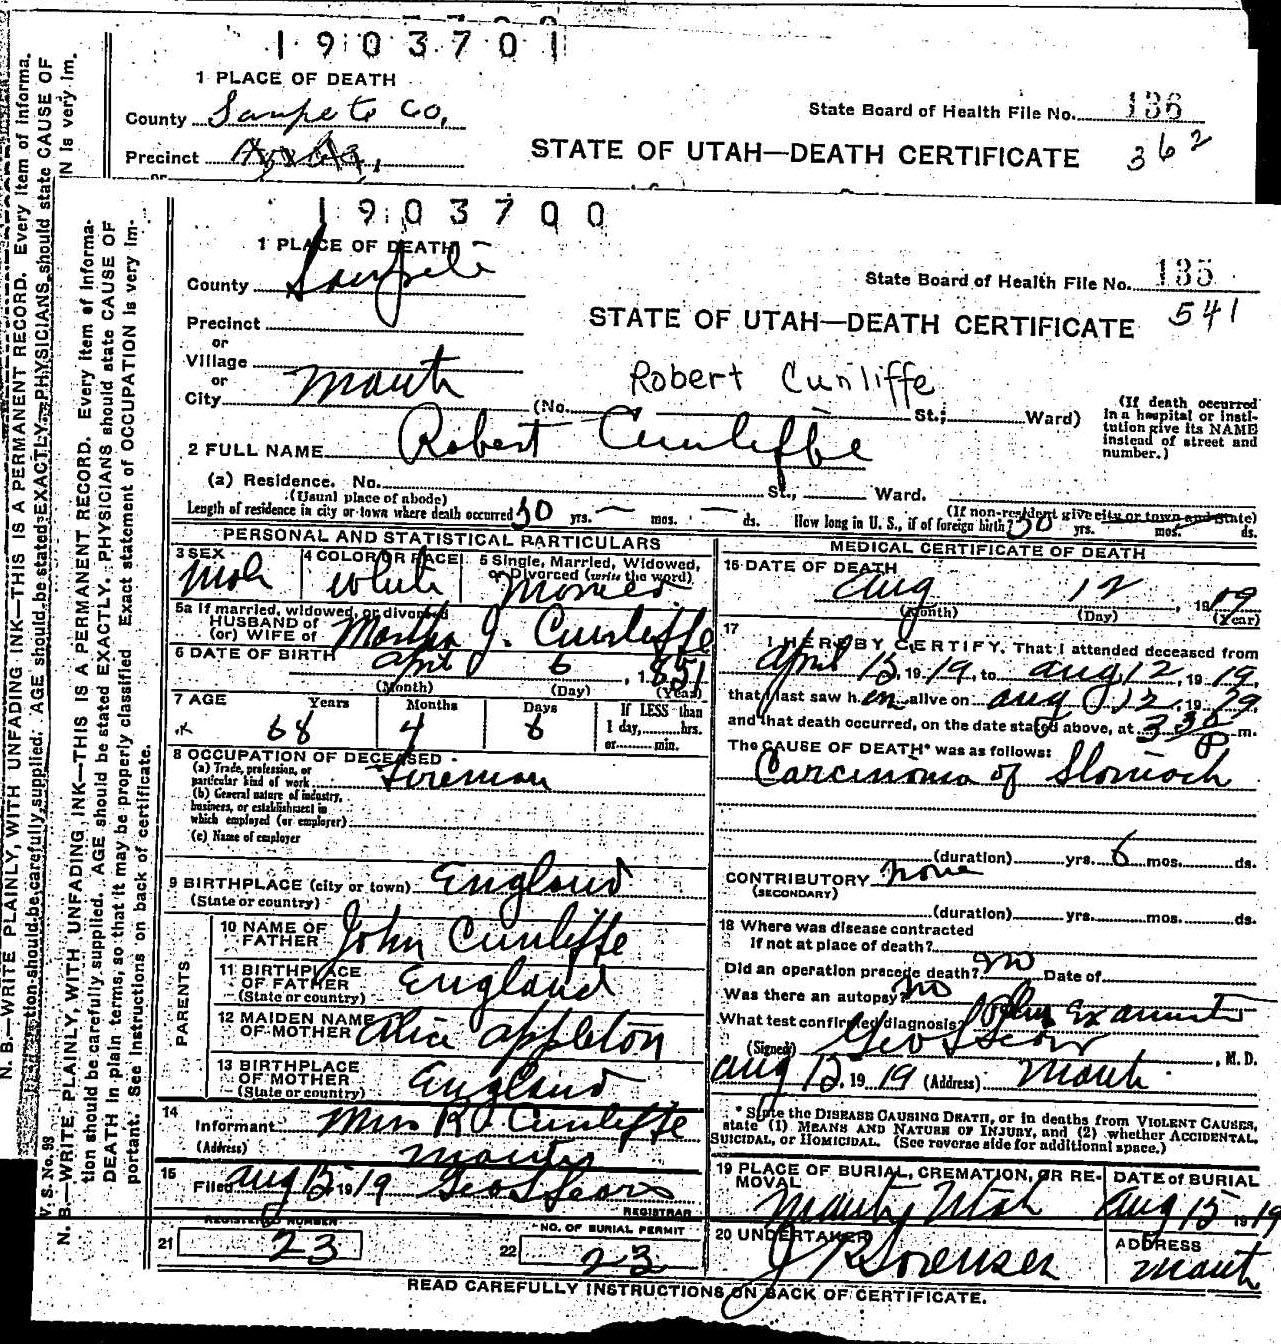 1903701
1 PLACE OF DEATH
County Sanpete Co,
State Board of Health File No. 136
362
Precinct
STATE OF UTAH—DEATH CERTIFICATE
or
1903700
1 PLACE OF DEATH
County Sanpete
State Board of Health File No. 135
541
Precinct
STATE OF UTAH—DEATH CERTIFICATE
or
Village
or
City Manti
Robert Cunliffe
(No. St.; Ward)
(If death occurred
in a hospital or insti-
tution give its NAME
instead of street and
number.)
2 FULL NAME Robert Cunliffe
(a) Residence. No. St., Ward.
(Usual place of abode)
(If non-resident give city or town and State)
Length of residence in city or town where death occurred 50 yrs. — mos. — ds. How long in U. S., if of foreign birth? 50 yrs. mos. ds.
PERSONAL AND STATISTICAL PARTICULARS
3 SEX
Male
4 COLOR OR RACE
White
5 Single, Married, Widowed,
or Divorced (write the word)
Married
5a If married, widowed, or divorced
HUSBAND of
(or) WIFE of Martha J. Cunliffe
6 DATE OF BIRTH April 6, 1851
(Month) (Day) (Year)
7 AGE Years Months Days If LESS than
68 4 6 1 day, hrs.
or min.
8 OCCUPATION OF DECEASED
(a) Trade, profession, or
particular kind of work Fireman
(b) General nature of industry,
business, or establishment in
which employed (or employer)
(c) Name of employer
9 BIRTHPLACE (city or town) England
(State or country)
PARENTS
10 NAME OF
FATHER John Cunliffe
11 BIRTHPLACE
OF FATHER England
(State or country)
12 MAIDEN NAME
OF MOTHER Alice Appleton
13 BIRTHPLACE
OF MOTHER England
(State or country)
14
Informant Mrs R Cunliffe
(Address) Manti
15
Filed Aug 15, 1919 Geo L Sears
REGISTRAR
REGISTERED NUMBER
21 23
NO. OF BURIAL PERMIT
22 23
MEDICAL CERTIFICATE OF DEATH
16 DATE OF DEATH
Aug 12, 1919
(Month) (Day) (Year)
17
I HEREBY CERTIFY, That I attended deceased from
April 15, 1919, to Aug 12, 1919,
that I last saw him alive on Aug 12, 1919,
and that death occurred, on the date stated above, at 330 P m.
The CAUSE OF DEATH* was as follows:
Carcinoma of Stomach
(duration) yrs. 6 mos. ds.
CONTRIBUTORY none
(SECONDARY)
(duration) yrs. mos. ds.
18 Where was disease contracted
if not at place of death?
Did an operation precede death? no Date of
Was there an autopsy? no
What test confirmed diagnosis?
(Signed) Geo L Sears, M. D.
Aug 15, 1919 (Address) Manti
* State the DISEASE CAUSING DEATH, or in deaths from VIOLENT CAUSES,
state (1) MEANS AND NATURE OF INJURY, and (2) whether ACCIDENTAL,
SUICIDAL, or HOMICIDAL. (See reverse side for additional space.)
19 PLACE OF BURIAL, CREMATION, OR RE-
MOVAL
Manti, Utah
DATE of BURIAL
Aug 15 1919
20 UNDERTAKER
J Sorensen
ADDRESS
Manti
READ CAREFULLY INSTRUCTIONS ON BACK OF CERTIFICATE.
V. S. No. 98
N. B.—WRITE PLAINLY, WITH UNFADING INK—THIS IS A PERMANENT RECORD. Every item of informa-
tion should be carefully supplied. AGE should be stated EXACTLY. PHYSICIANS should state CAUSE OF
DEATH in plain terms, so that it may be properly classified. Exact statement of OCCUPATION is very im-
portant. See instructions on back of certificate.
N. B.—WRITE PLAINLY, WITH UNFADING INK—THIS IS A PERMANENT RECORD. Every item of informa-
tion should be carefully supplied. AGE should be stated EXACTLY. PHYSICIANS should state CAUSE OF
N is very im-